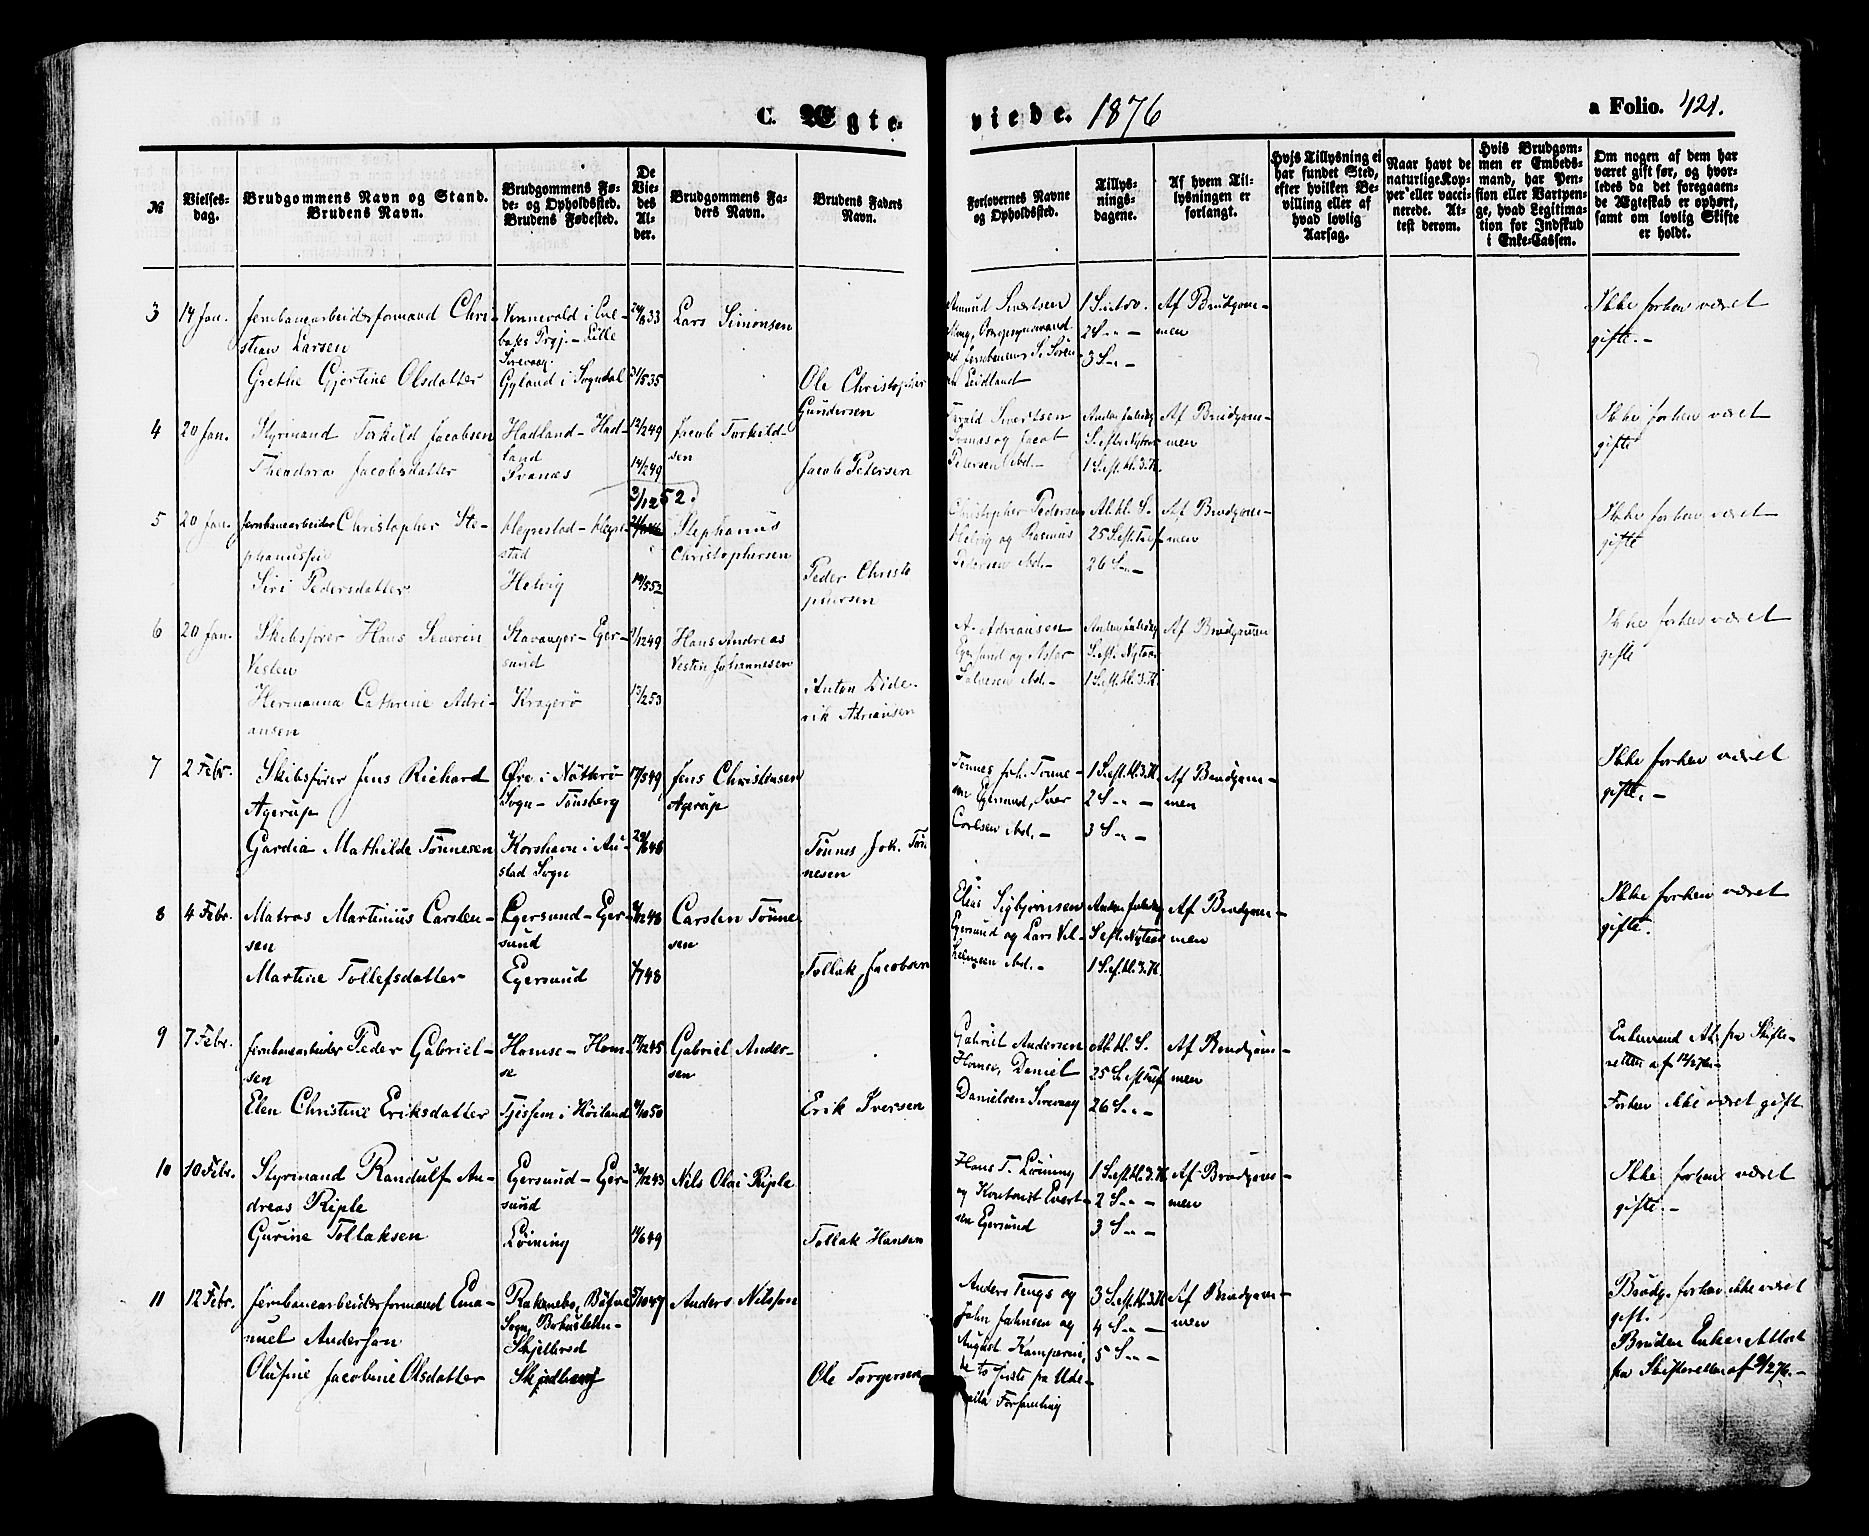 C. Ægte-
viede. 1876
a Folio. 421.
№
Vielses-
dag.
Brudgommens Navn og Stand.
Brudens Navn.
Brudgommens Fø-
de- og Opholdssted.
Brudens Fødested.
De
Vie-
des
Al-
der.
Brudgommens Fa-
ders Navn.
Brudens Faders
Navn.
Forlovernes Navne
og Opholdssted.
Tillys-
nings-
dagene.
Af hvem Til-
lysningen er
forlangt.
Hvis Tillysning ei
har fundet Sted,
efter hvilken Be-
villing eller af
hvad lovlig
Aarsag.
Naar havt de
naturlige Kop-
per eller vacci-
nerede. At-
test derom.
Hvis Brudgom-
men er Embeds-
mand, har Pen-
sion eller Vartpen-
ge, hvad Legitima-
tion for Indskud
i Enke-Cassen.
Om nogen af dem har
været gift før, og hvor-
ledes da det foregaaen-
de Ægteskab er ophørt,
samt om lovlig Skifte
er holdt.
3
14 Jan.
Jernbanearbeiderformand Chri-
stian Larsen
Grethe Gjertine Olsdatter
Lille
Sirevaag.
Gyland i Sogndal
Lars Simonsen
Ole Christopher
Gundersen
1 S.
2 S. " –
3 S. " –
Af Brudgom-
men
Ikke forhen været
gifte. –
4
20 Jan.
Styrmand Torkild Jacobsen
Theodora Jacobsdatter
Hadland – Had-
land
Svanæs
12/2 49
14/2 49
Jacob Torkild-
sen
Jacob Petersen
Sivertsen
og Jacob
Petersen ibd. –
Af Brudgom-
men
Ikke forhen været
gifte
5
20 Jan.
Jernbanearbeider Christopher Ste-
phanussen
Siri Pedersdatter
Hegrestad – Hegre-
stad
Helvig
3/12 52.
19/5 52
Stephanus
Christophersen
Peder Christo-
phersen
Christopher Pedersen
Helvig og Rasmus
Petersen ibd. –
25 S. eft. Tref
26 S. " –
Af Brudgom-
men
Ikke forhen været
gifte
6
20 Jan.
Skibsfører Hans Severin
Vesten
Hermanna Cathrine Adri-
ansen
Stavanger – Eger-
sund
Kragerø
13/2 53
Hans Andreas
Vesten Johannesen
Anton Dide-
rik Adriansen
A. Adriansen
Egersund og
ibd. –
S. eft. Nytaar
1 S. eft. hl. 3. K.
Af Brudgommen
Ikke forhen været
gifte
7
2 Febr.
Skibsfører Jens Richard
Agerup
Gardia Mathilde Tønnesen
Øre i Nøtterø
Sogn – Tønsberg
Korshavn i Au-
stad Sogn
17/5 49
Jens Christensen
Agerup
Tønnes Joh. Tøn-
nesen
Tønnes Joh. Tønne-
sen Egersund,
Carlsen ibd. –
1 S. eft. hl. 3. K.
2 S. " –
3 S. " –
Af Brudgom-
men
Ikke forhen været
gifte. –
8
4 Febr.
Matros Martinius Carsten-
sen
Martine Tollefsdatter
Egersund – Eger-
sund
Egersund
Carsten Tønne-
sen
Tollak Jacobsen
Elias Sigbjørnsen
Egersund og Lars Vil-
helmsen ibd. –
S. eft. Nytaar
1 S. eft. hl. 3. K.
Af Brudgom-
men
Ikke forhen været
gifte.
9
7 Febr.
Jernbanearbeider Peder Gabriel-
sen
Elen Christine Eriksdatter
Homse – Hom-
se
Tjessem i Høiland
Gabriel Ander-
sen
Erik Iversen
Gabriel Andersen
Homse, Daniel
Danielsen Sirevaag
25 S. eft Tref
26 S. " –
Af Brudgom-
men
Enkemand At. fra Skifte-
retten af 12/2 76. –
Forhen ikke været gift
10
10 Febr.
Styrmand Randulf An-
dreas Riple
Gurine Tollaksen
Egersund – Eger-
sund
Løining
30/12 43
Nils Olai Riple
Tollak Hansen
Hans T. Løining
og Kontorist Evert-
sen Egersund
1 S. eft. hl. 3. K.
2 S. " –
3 S. " –
Af Brudgom-
men
Ikke forhen været
gifte. –
11
12 Febr.
Jernbanearbeiderformand Ema-
nuel Andersson
Olufine Jacobine Olsdatter
Rakenebo, Bøfve
Sogn,
Anders Nilsson
Ole Torgersen
Anders Tengs og
John Johnsen og
August
de to første fra Ude-
Forsamling
3 S. eft. hl. 3. K.
4 S. " –
5 S. " –
Af Brudgom-
men
Brudg. forhen ikke været
gift.
Bruden Enke. Attest
fra Skifteretten af 9/2 76. –